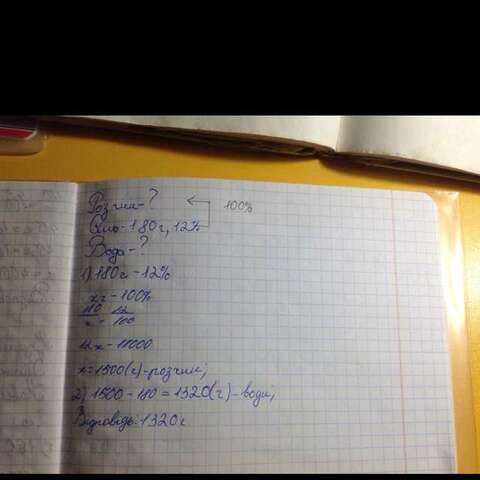 Розчин - ?
100%
Сіль - 180г, 12%
Вода - ?
1) 180г - 12%
xг - 100%
180/x = 12/100
12x = 18000
x = 1500(г) - розчин;
2) 1500 - 180 = 1320(г) - води;
Відповідь: 1320г